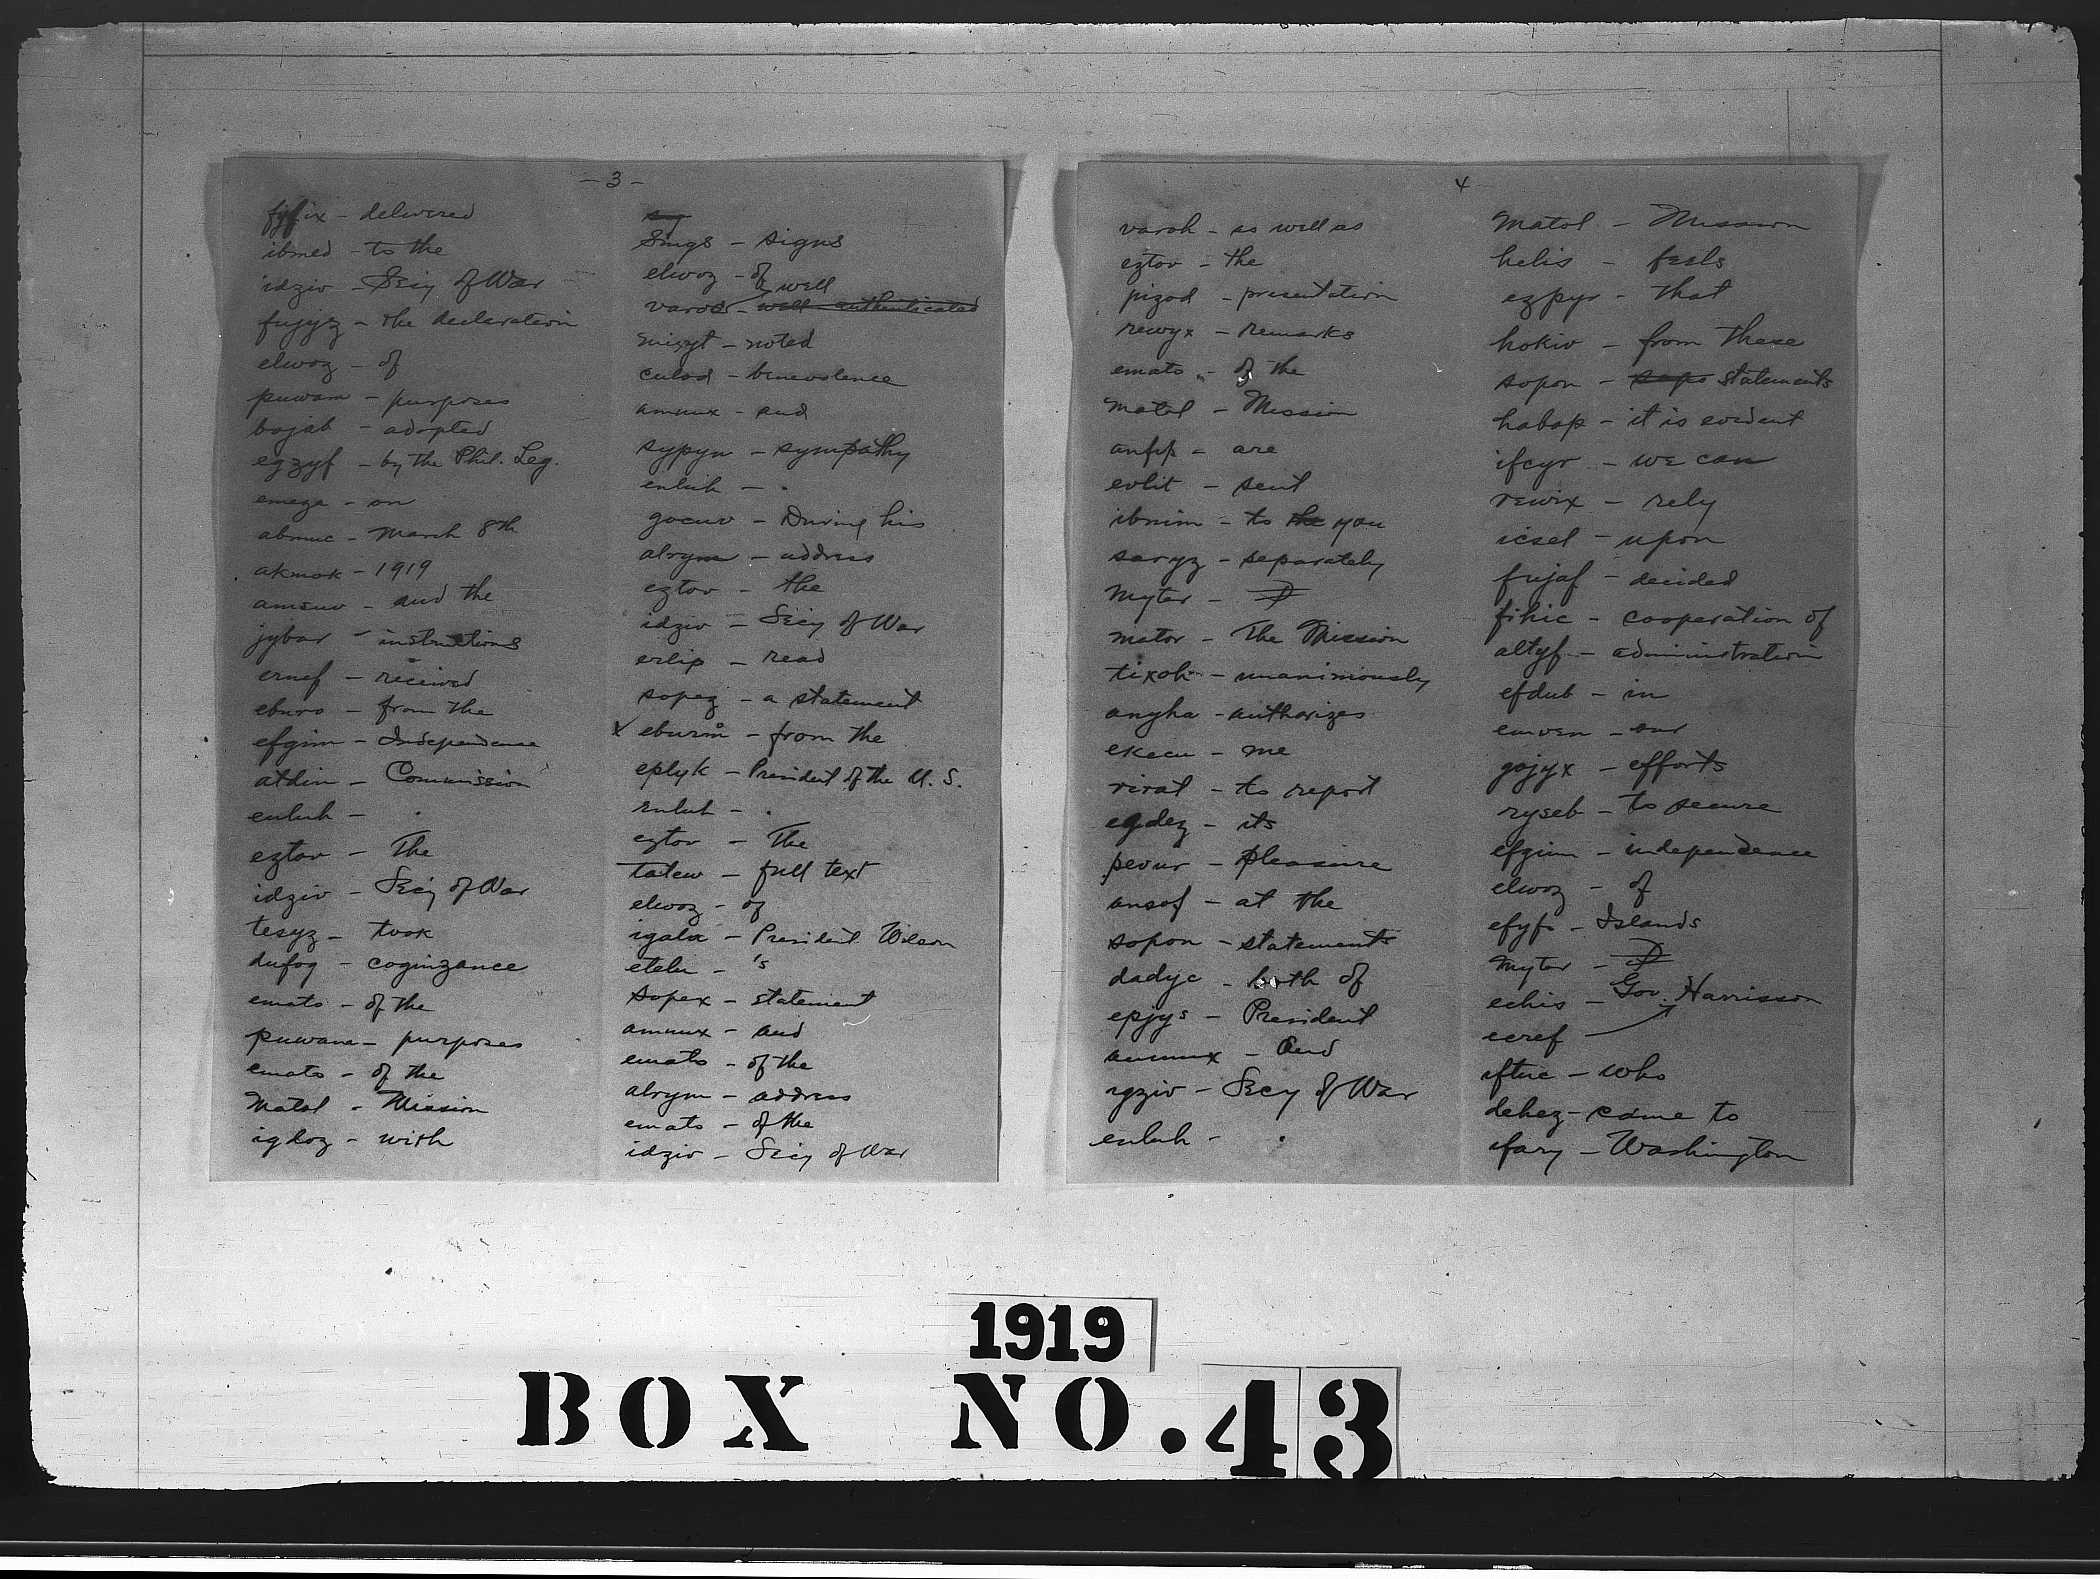 - 3 -
fyfix - delivered
ibmed - to the
idziv - Sec'y of War
fujyz - the declaration
elwoz - of
puwam - purposes
bojab - adopted
egzyf - by the Phil. Leg.
emeza - on
abmuc - March 8th
akmok - 1919
amsuv - and the
jybar - instructions
ernef - received
eburo - from the
efgim - Independence
atdin - Commission
enluh - .
eztov - The
idziv - Sec'y of War
tesyz - took
dufog - coginzance
emato - of the
puwam - purposes
emato - of the
Matol - Mission
igdoz - with
Syngs - signs
elwoz - of
varod - well
well authenticated
misyt - noted
culod - benevolence
amnux - and
sypyn - sympathy
enluh - .
gocuv - During his
alrym - address
eztov - the
idziv - Sec'y of War
erlip - read
sopez - a statement
x eburm - from the
eplyk - President of the U. S.
enluh - .
eztov - The
talew - full text
elwoz - of
igala - President Wilson
etelu - 's
sopex - statement
amnux - and
emato - of the
alrym - address
emato - of the
idziv - Sec'y of War
4
varoh - as well as
eztov - the
pizod - presentation
rewyx - remarks
emato - of the
Matol - Mission
anfip - are
evlit - sent
ibnim - to the you
saryz - separately
Mytar -
mator - The Mission
tixok - unanimously
anyha - authorizes
ekecu - me
virat - to report
egdez - its
pevur - pleasure
ansof - at the
sopon - statements
dadyc - both of
epjys - President
amnux - and
igziv - Secy of War
enluh - .
Matol - Mission
helis - feels
ezpyr - that
hokiv - from these
sopon - statements
habap - it is evident
ifcyr - we can
rewix - rely
icsel - upon
fujaf - decided
fihic - cooperation of
altyf - administration
efdub - in
emven - our
gojyx - efforts
ryseb - to secure
efgim - independence
elwoz - of
efyfo - Islands
Mytar -
echis - Gov. Harrison
ecref
iftuc - who
dehez - came to
ifary - Washington
1919
BOX NO. 43